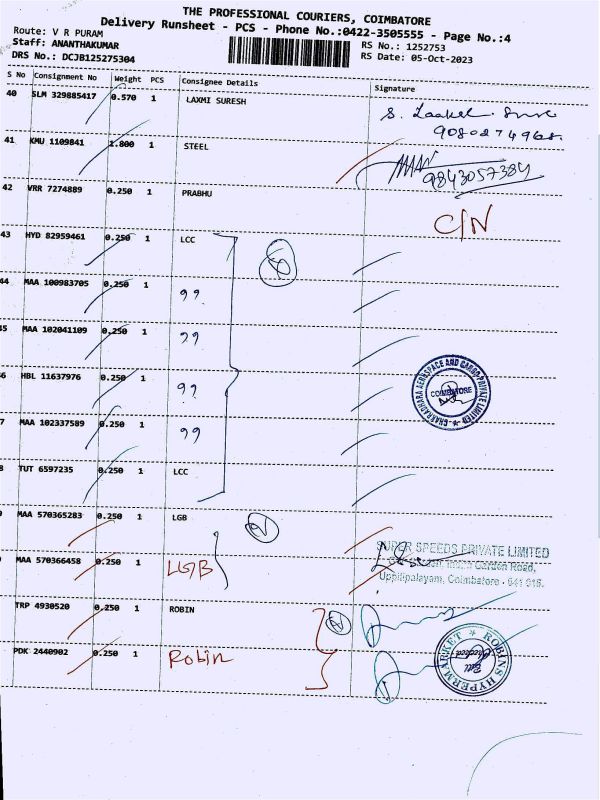 THE PROFESSIONAL COURIERS, COIMBATORE
Delivery Runsheet - PCS - Phone No.:0422-3505555 - Page No.:4
Route: V R PURAM
Staff: ANANTHAKUMAR
DRS No.: DCJB125275304
RS No.: 1252753
RS Date: 05-Oct-2023
S No Consignment No Weight PCS Consignee Details Signature
40 SLM 329885417 0.570 1 LAXMI SURESH
9080274968
41 KMU 1109841 1.800 1 STEEL
9843057384
42 VRR 7274889 0.250 1 PRABHU
C/N
43 HYD 82959461 0.250 1 LCC
44 MAA 100983705 0.250 1 ,,
5 MAA 102041109 0.250 1 ,,
6 HBL 11637976 0.250 1 ,,
7 MAA 102337589 0.250 1 ,,
8 TUT 6597235 0.250 1 LCC
CHAKRADHARA AEROSPACE AND CARGO PRIVATE LIMITED
COIMBATORE
MAA 570365283 0.250 1 LGB
SUPER SPEEDS PRIVATE LIMITED
Garden Road,
Uppilipalayam, Coimbatore - 641 018.
MAA 570366458 0.250 1 LGB
TRP 4930520 0.250 1 ROBIN
PDK 2440902 0.250 1 Robin
ROBINS HYPERMARKET